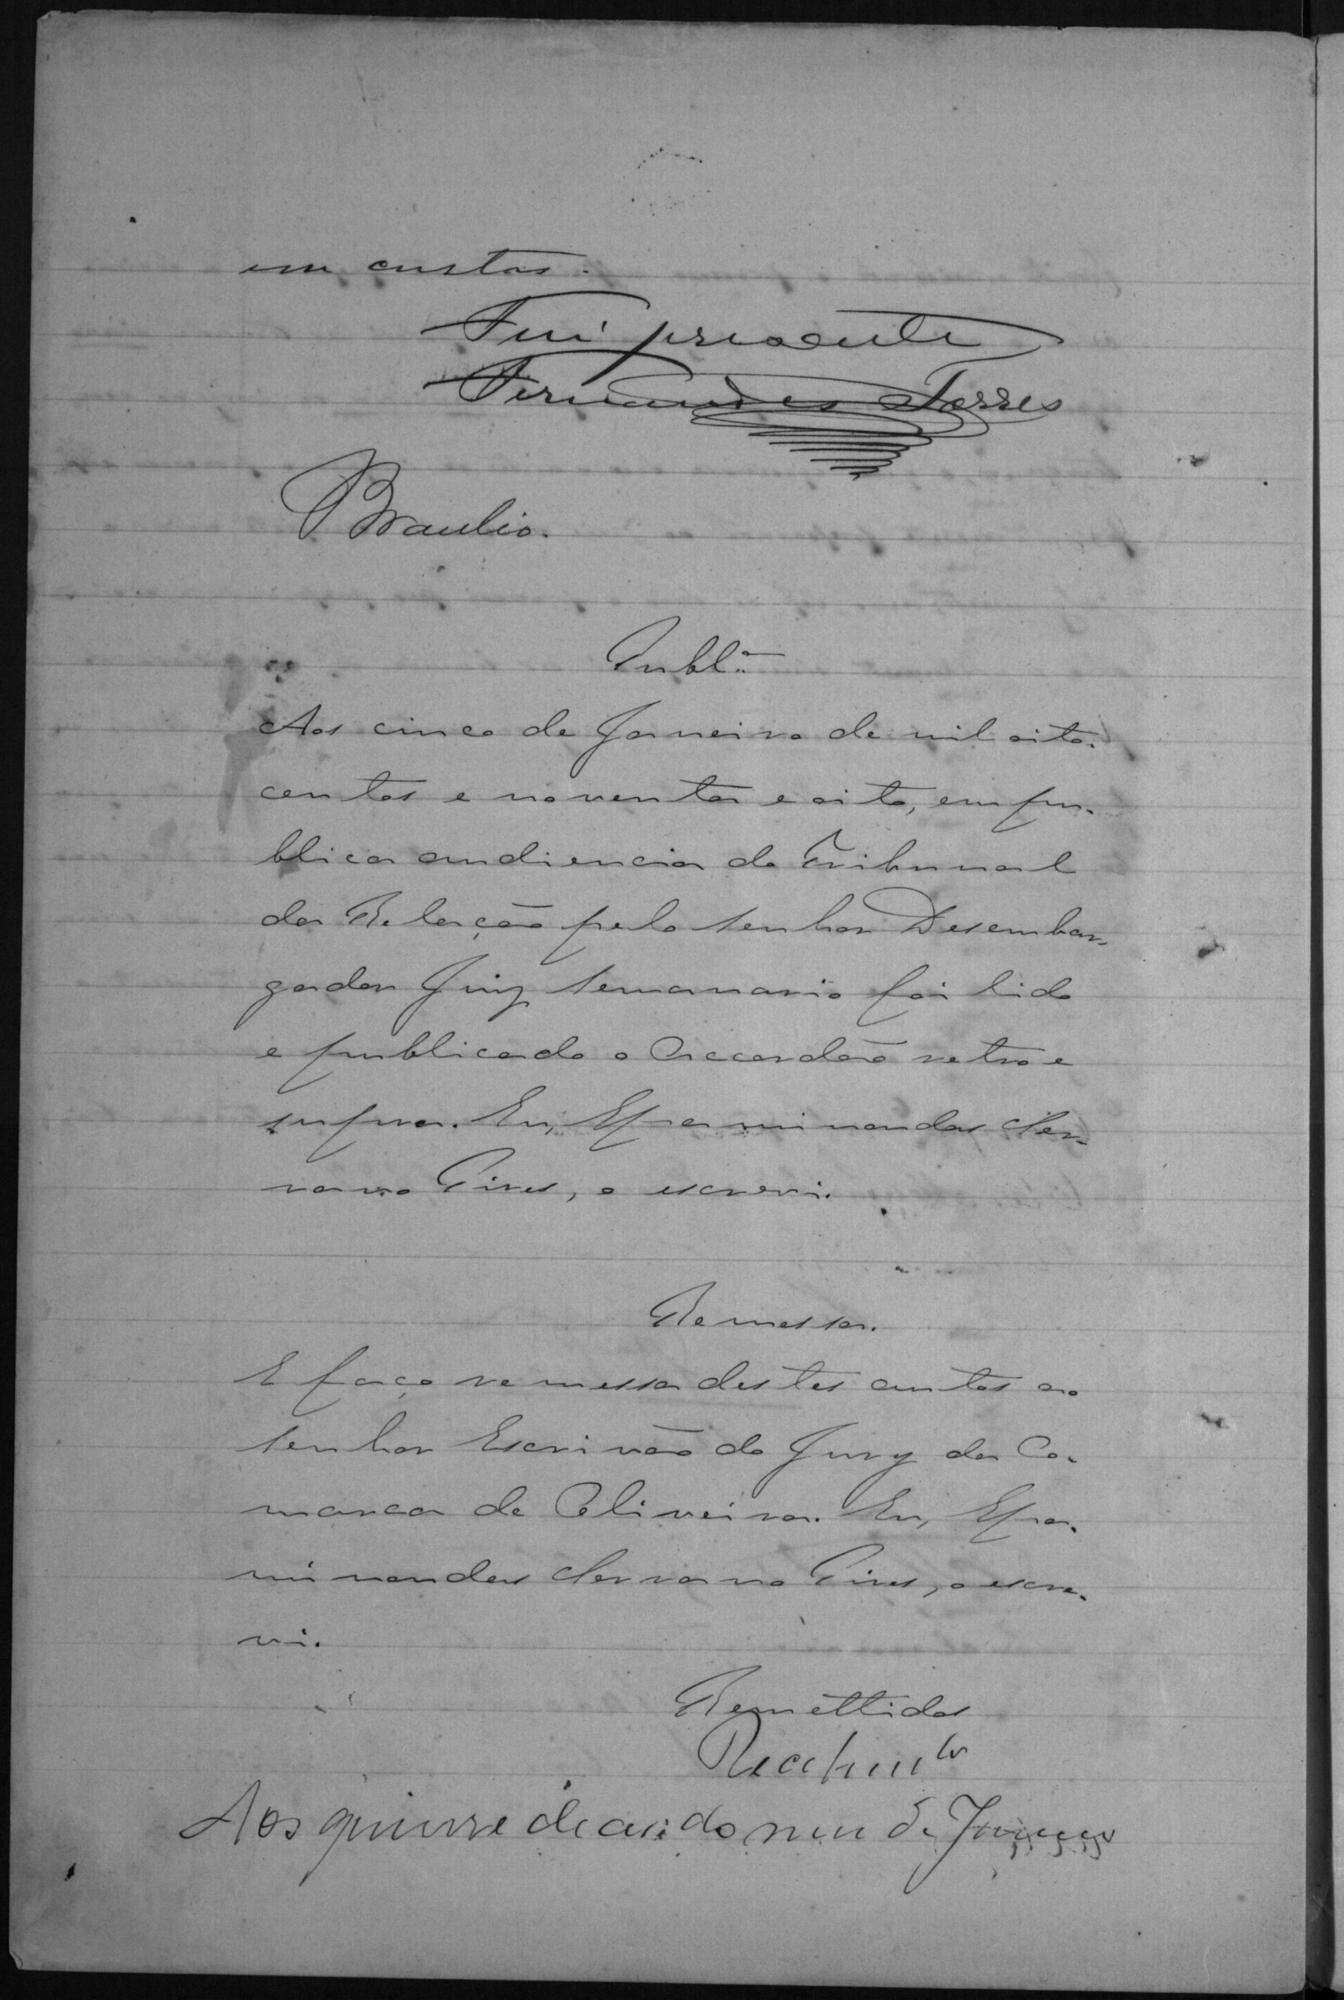 em custas.
Fui presente
Fernandes Torres
Braulio.
Publ.am
Aos cinco de Janeiro de mil oito-
centos e noventa e oito, em pu-
blica audiencia do Tribunal
da Relação pelo senhor Desembar-
gador Juiz semanario foi lido
e publicado o Accordão retro e
supra. Eu, Epaminondas Ser-
rano Pires, o escrevi.
Remessa.
E faço remessa destes autos ao
senhor Escrivão do Jury da Co-
marca de Oliveira. Eu, Epa-
minondas Serrano Pires, o escre-
vi.
Remettidos
Recebim.to
Aos quinze dias do mez de Janeiro